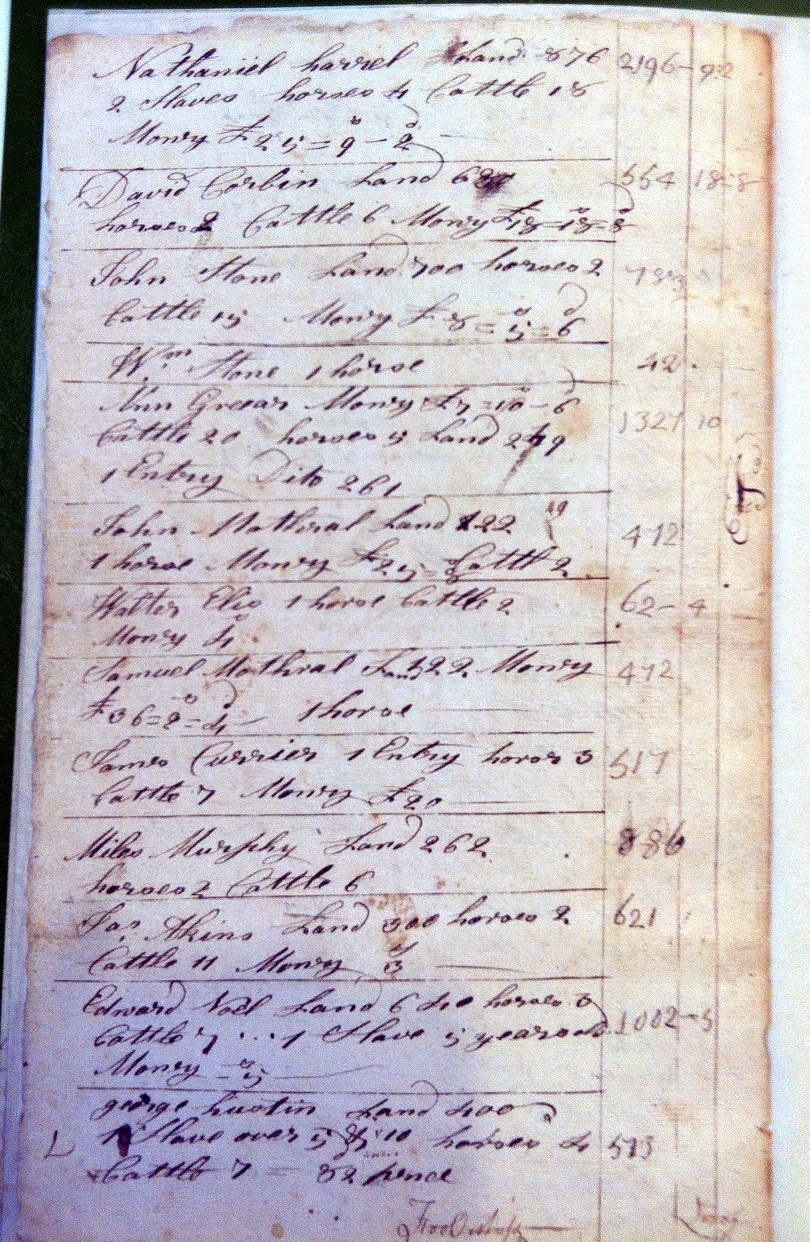 Nathaniel harrel Land 876 2196-9-2
2 Slaves horses 4 Cattle 18
Mony £25=9-2
David Corbin Land 680 554 18-8
horses 2 Cattle 6 Mony £18=18=8
John Stone Land 700 horses 2 783
Cattle 15 Mony £8=5=6
Wm Stone 1 horse 42
Ann Greear Mony £7=10-6 1327 10
Cattle 20 horses 5 Land 249
1 Entry Dito 261
John Mathral Land 122 472
1 horse Mony £25= Cattle 2
Walter Elis 1 horse Cattle 2 62-4
Mony 4
Samuel Mathral Land 122 Mony 472
£36=2=4 1 horse
James Currier 1 Entry horses 3 517
Cattle 7 Mony £20
Miles Murphy Land 262 886
horses 2 Cattle 6
Jas Akins Land 300 horses 2 621
Cattle 11 Mony 3
Edward Noel Land 640 horses 3 1002-5
Cattle 7 ... 1 Slave 5 years old
Mony =5
george hustin Land 400
L 1 Slave over 5 & 10 horses 4 513
Cattle 7 = 82 pence